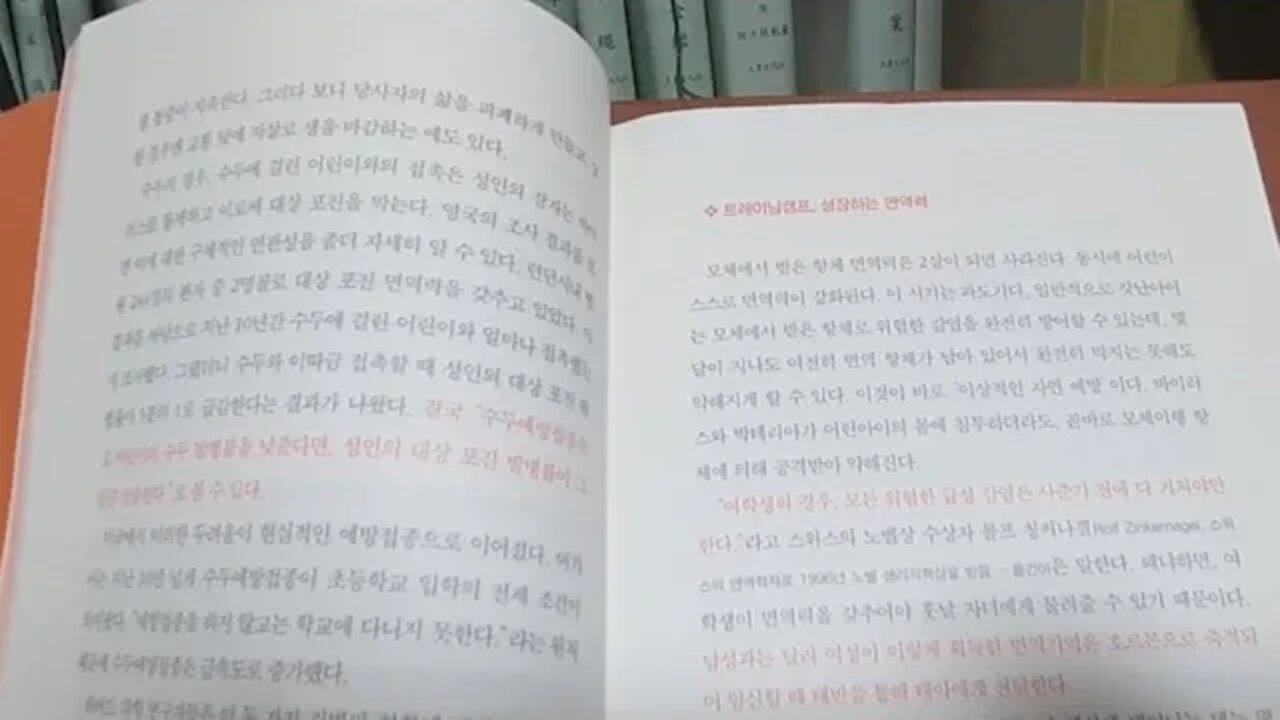 통증이 지속된다. 그러다 보니 당사자의 삶을 피폐하게 만들고, 심
한 경우엔 고통 탓에 자살로 생을 마감하는 예도 있다.
수두의 경우, 수두에 걸린 어린이와의 접촉은 성인의 잠자는 바이
러스를 통제하고 이로써 대상 포진을 막는다. 영국의 조사 결과를 보
면 이에 대한 구체적인 연관성을 좀더 자세히 알 수 있다. 런던시내 병
원 244명의 환자 중 2명꼴로 대상 포진 면역력을 갖추고 있었다. 이
결과를 바탕으로 지난 10년간 수두에 걸린 어린이와 얼마나 접촉했는
지 조사했다. 그랬더니 수두와 이따금 접촉할 때 성인의 대상 포진 위
험률이 5분의 1로 급감한다는 결과가 나왔다. 결국 "수두예방접종으
로 어린이의 수두 발병률을 낮춘다면, 성인의 대상 포진 발병률이 그
만큼 상승한다"로 볼 수 있다.
미국에서 이러한 두려움이 현실적인 예방접종으로 이어졌다. 여기
서는 지난 10년 넘게 수두예방접종이 초등학교 입학의 전제 조건이
되어왔다. "예방접종을 하지 않고는 학교에 다니지 못한다."라는 원칙
때문에 수두예방접종은 급속도로 증가했다.
❖ 트레이닝캠프, 성장하는 면역력
모체에서 받은 항체 면역력은 2살이 되면 사라진다. 동시에 어린이
스스로 면역력이 강화된다. 이 시기는 과도기다. 일반적으로 갓난아이
는 모체에서 받은 항체로 위험한 감염을 완전히 방어할 수 있는데, 몇
달이 지나도 여전히 면역 항체가 남아 있어서 완전히 막지는 못해도
약해지게 할 수 있다. 이것이 바로 '이상적인 자연 예방'이다. 바이러
스와 박테리아가 어린아이의 몸에 침투하더라도, 곧바로 모체이행 항
체에 의해 공격받아 약해진다.
"여학생의 경우, 모든 위험한 급성 감염은 사춘기 전에 다 거쳐야만
한다."라고 스위스의 노벨상 수상자 롤프 칭커나겔(Rolf Zinkernagel, 스위
스의 면역학자로 1996년 노벨 생리의학상을 받음 - 옮긴이)은 말한다. 왜냐하면, 여
학생이 면역력을 갖추어야 훗날 자녀에게 물려줄 수 있기 때문이다.
남성과는 달리 여성이 이렇게 획득한 면역기억은 호르몬으로 축적되
어 임신할 때 태반을 통해 태아에게 전달한다.